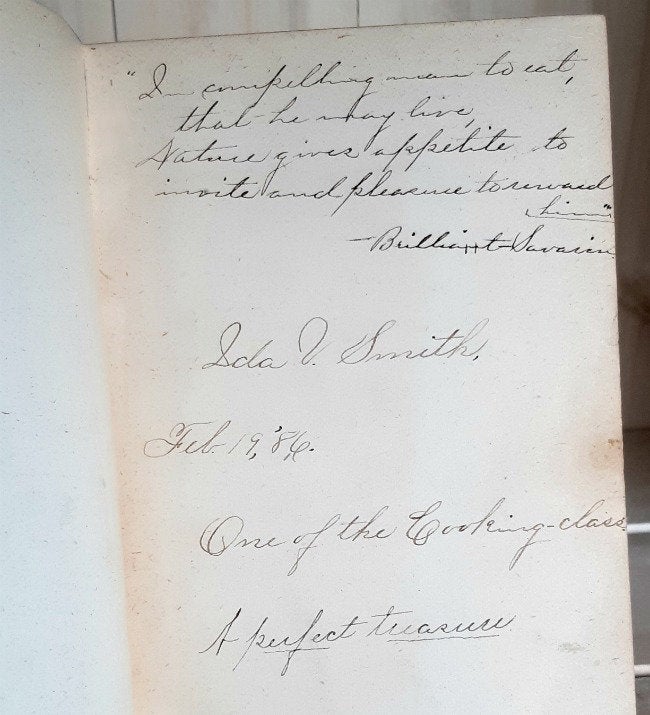 "In compelling man to eat,
that he may live,
Nature gives appetite to
invite and pleasure to reward
him"
- Brilliant-Savarin
Ida V. Smith,
Feb. 19, '86.
One of the Cooking-class.
A perfect treasure